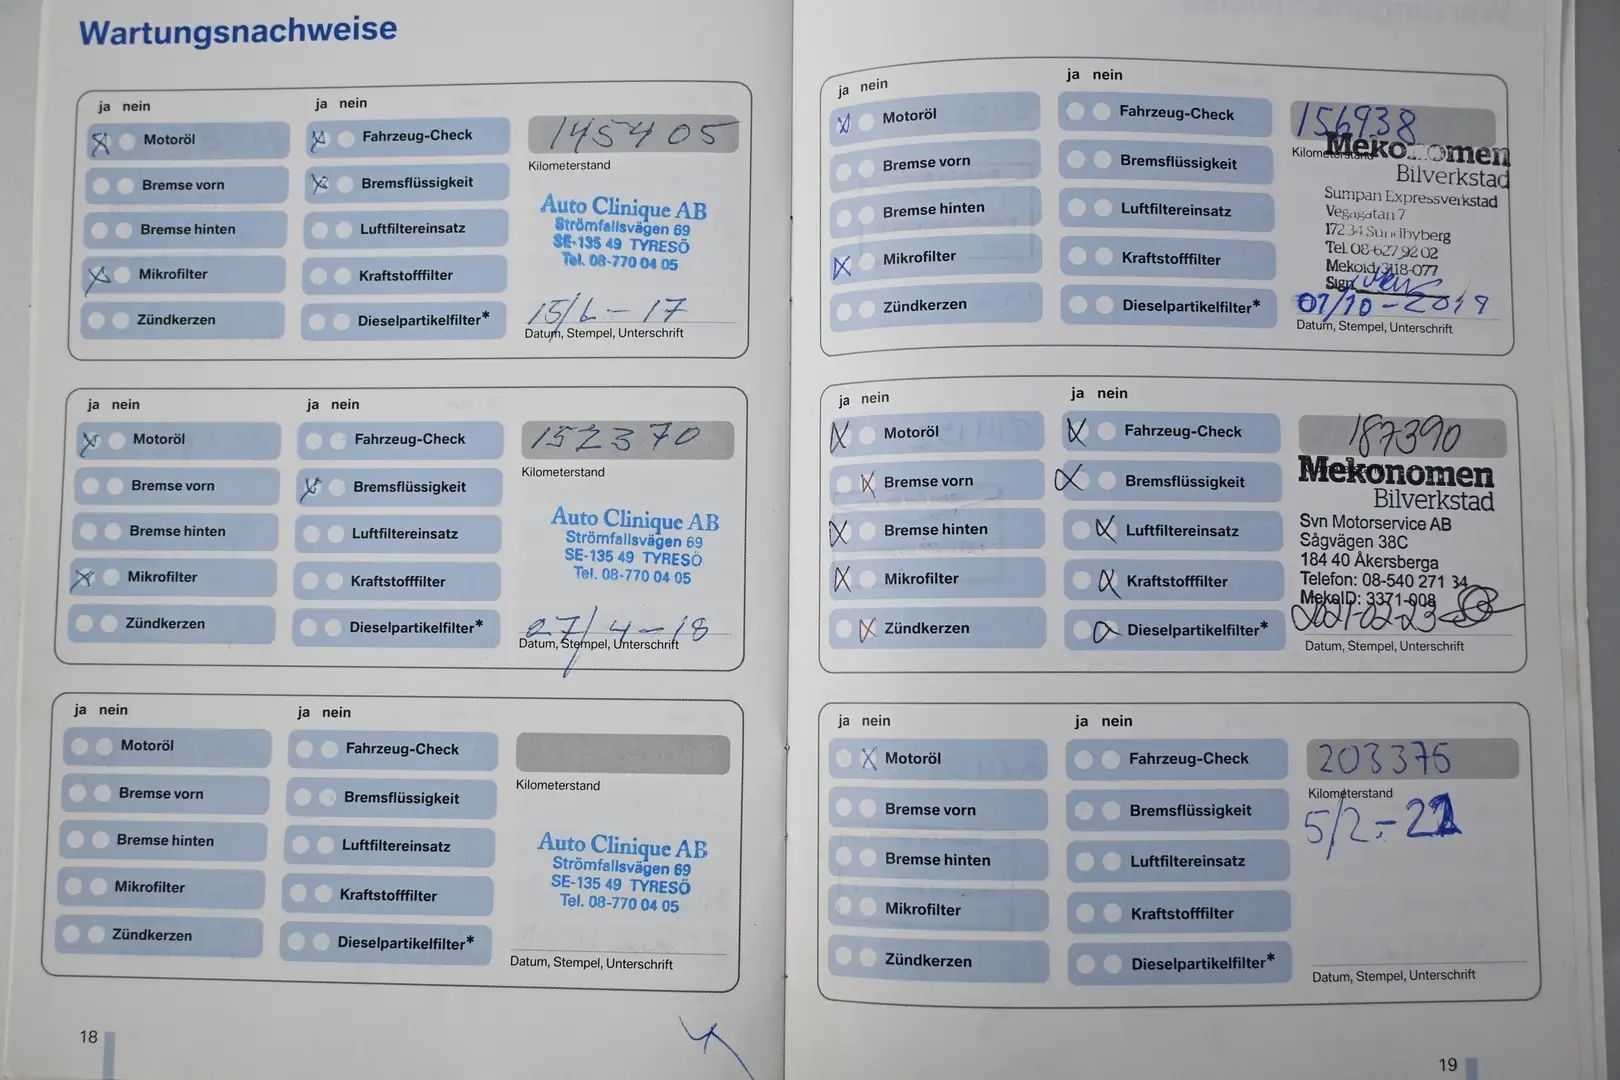 Wartungsnachweise
ja nein
ja nein
Motoröl
Fahrzeug-Check
145405
Bremse vorn
Bremsflüssigkeit
Kilometerstand
Bremse hinten
Luftfiltereinsatz
Mikrofilter
Kraftstofffilter
Zündkerzen
Dieselpartikelfilter*
Auto Clinique AB
Strömfallsvägen 69
SE-135 49 TYRESÖ
Tel. 08-770 04 05
15/6-17
Datum, Stempel, Unterschrift
ja nein
ja nein
Motoröl
Fahrzeug-Check
152370
Bremse vorn
Bremsflüssigkeit
Kilometerstand
Bremse hinten
Luftfiltereinsatz
Mikrofilter
Kraftstofffilter
Zündkerzen
Dieselpartikelfilter*
Auto Clinique AB
Strömfallsvägen 69
SE-135 49 TYRESÖ
Tel. 08-770 04 05
27/4-18
Datum, Stempel, Unterschrift
ja nein
ja nein
Motoröl
Fahrzeug-Check
Bremse vorn
Bremsflüssigkeit
Kilometerstand
Bremse hinten
Luftfiltereinsatz
Mikrofilter
Kraftstofffilter
Zündkerzen
Dieselpartikelfilter*
Auto Clinique AB
Strömfallsvägen 69
SE-135 49 TYRESÖ
Tel. 08-770 04 05
Datum, Stempel, Unterschrift
18
ja nein
ja nein
Motoröl
Fahrzeug-Check
156938
Bremse vorn
Bremsflüssigkeit
Kilometerstand
Bremse hinten
Luftfiltereinsatz
Mikrofilter
Kraftstofffilter
Zündkerzen
Dieselpartikelfilter*
Mekonomen
Bilverkstad
Sumpan Expressverkstad
Vegagatan 7
172 34 Sundbyberg
Tel. 08-627 92 02
Mekoid 3118-077
Sign
01/10-2019
Datum, Stempel, Unterschrift
ja nein
ja nein
Motoröl
Fahrzeug-Check
187390
Bremse vorn
Bremsflüssigkeit
Bremse hinten
Luftfiltereinsatz
Mikrofilter
Kraftstofffilter
Zündkerzen
Dieselpartikelfilter*
Mekonomen
Bilverkstad
Svn Motorservice AB
Sågvägen 38C
184 40 Åkersberga
Telefon: 08-540 271 34
MekoID: 3371-008
2021-02-23
Datum, Stempel, Unterschrift
ja nein
ja nein
Motoröl
Fahrzeug-Check
203375
Bremse vorn
Bremsflüssigkeit
Kilometerstand
Bremse hinten
Luftfiltereinsatz
Mikrofilter
Kraftstofffilter
Zündkerzen
Dieselpartikelfilter*
5/2-22
Datum, Stempel, Unterschrift
19